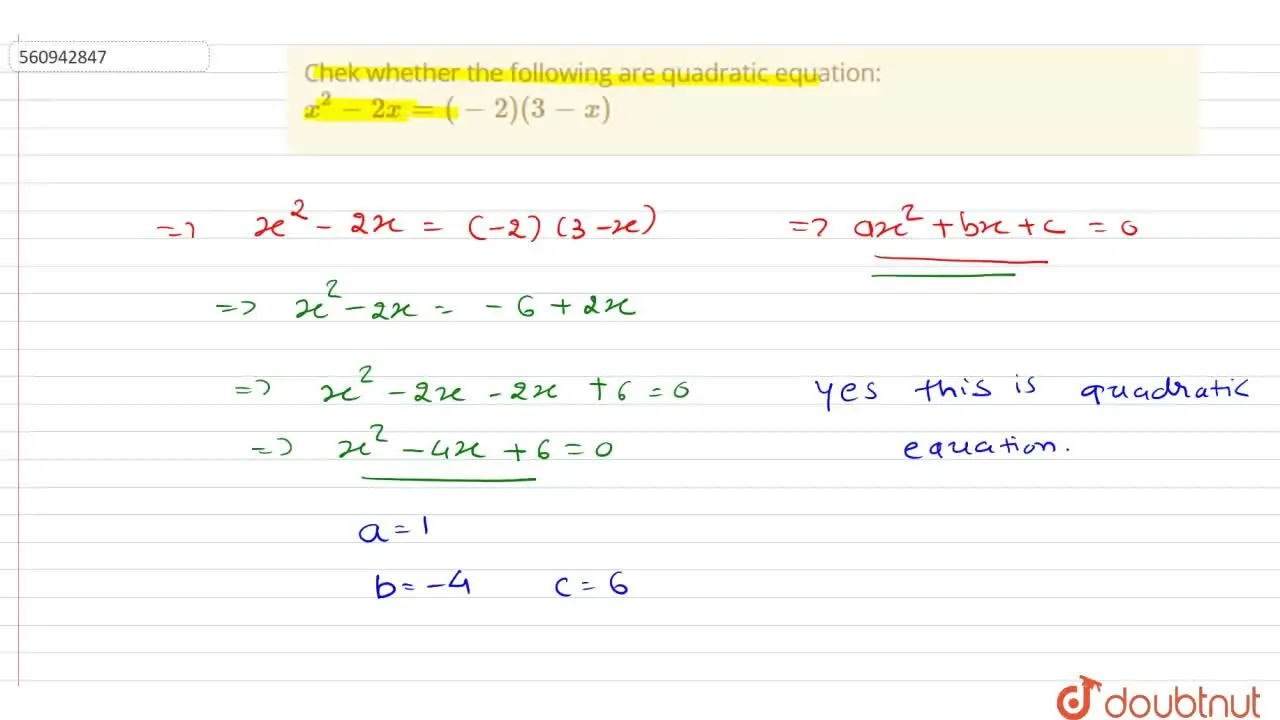 560942847
Chek whether the following are quadratic equation:
x² − 2x = (−2)(3 − x)
=> x² - 2x = (-2) (3-x) => ax² + bx + c = 0
=> x² - 2x = - 6 + 2x
=> x² - 2x - 2x + 6 = 0 yes this is quadratic
=> x² - 4x + 6 = 0 equation.
a = 1
b = -4 c = 6
doubtnut